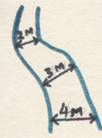 2M
3M
4M